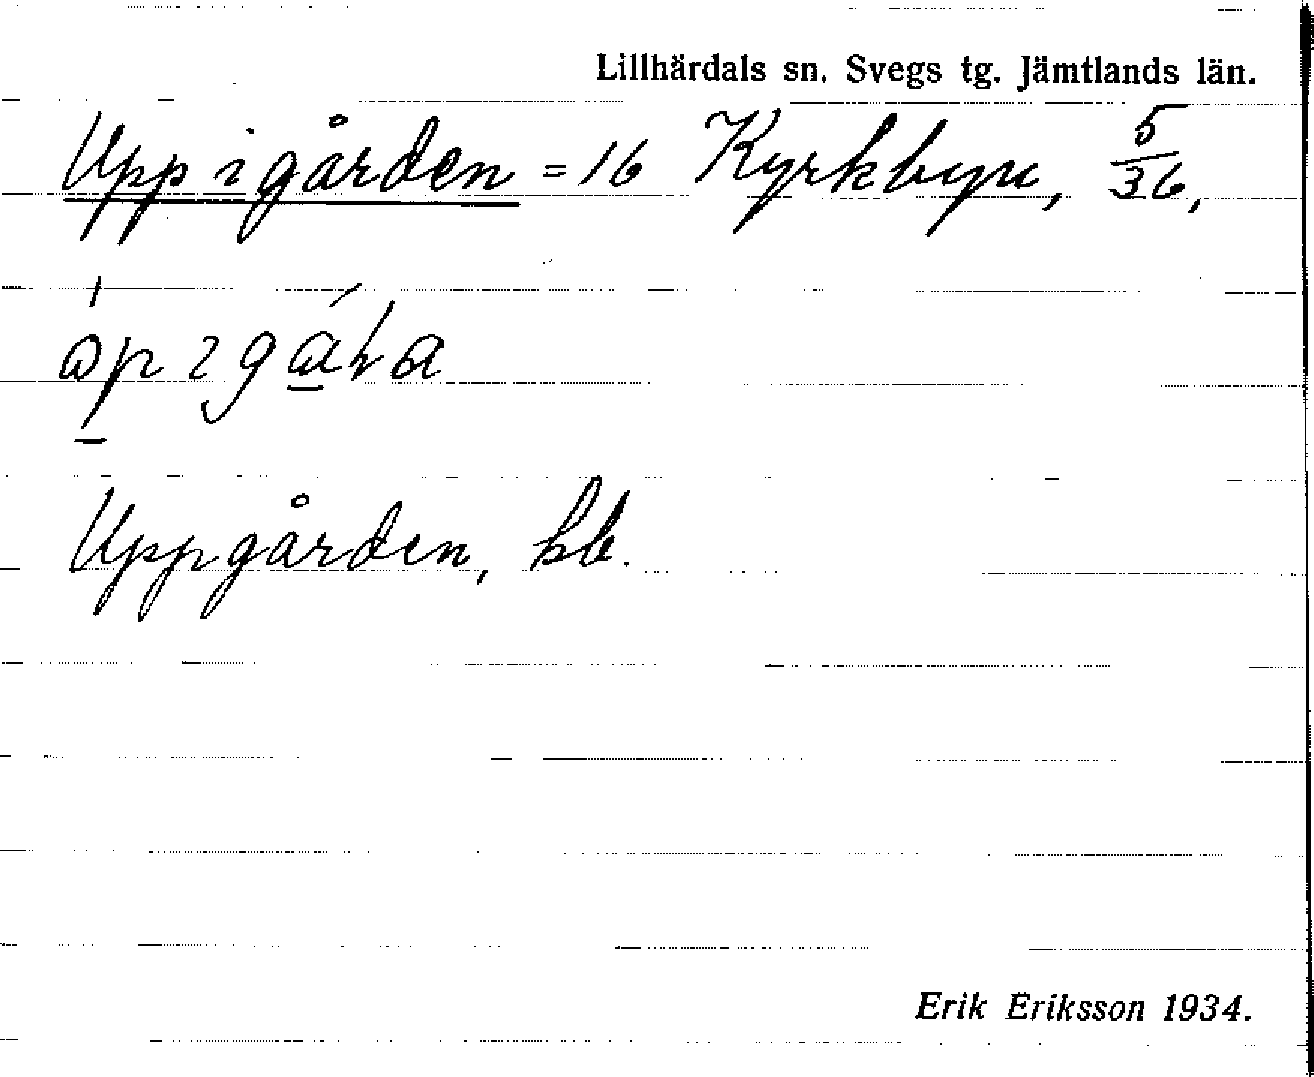 Lillhärdals sn. Svegs tg. Jämtlands län.
Upp i gården = 16 Kyrkbyn, 5/36,
Uppgården, hb.
Erik Eriksson 1934.